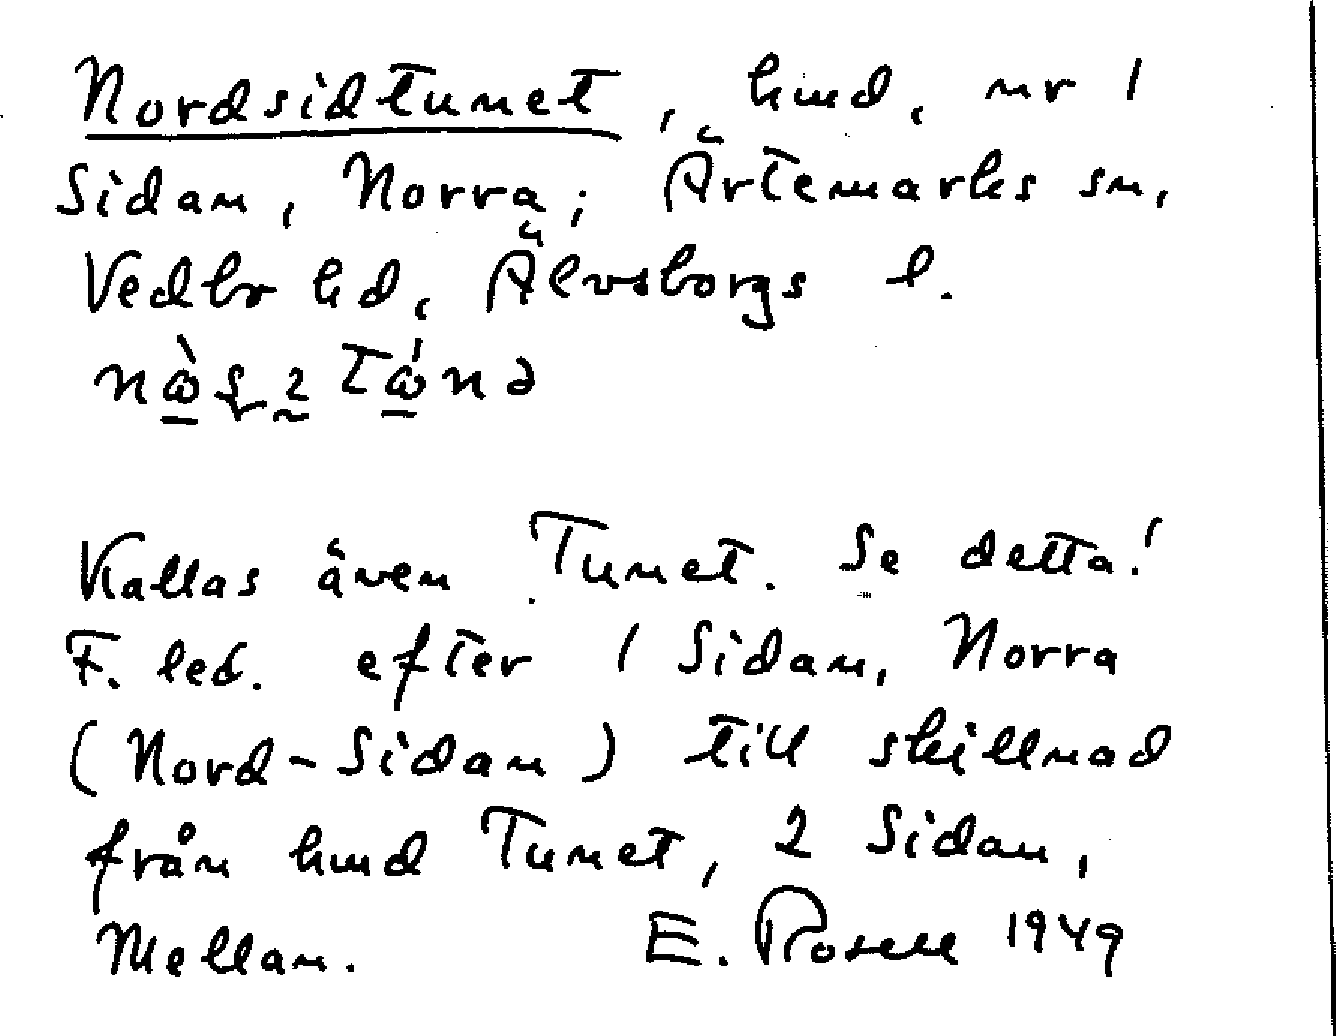 Nordsidtunet, hmd, nr 1
Sidan, Norra; Ärtemarks sn,
Vedbo hd, Älvsborgs l.
Kallas även Tunet. Se detta!
F. led. efter 1 Sidan, Norra
(Nord-Sidan) till skillnad
från hmd Tunet, 2 Sidan,
Mellan. E. Rosell 1949